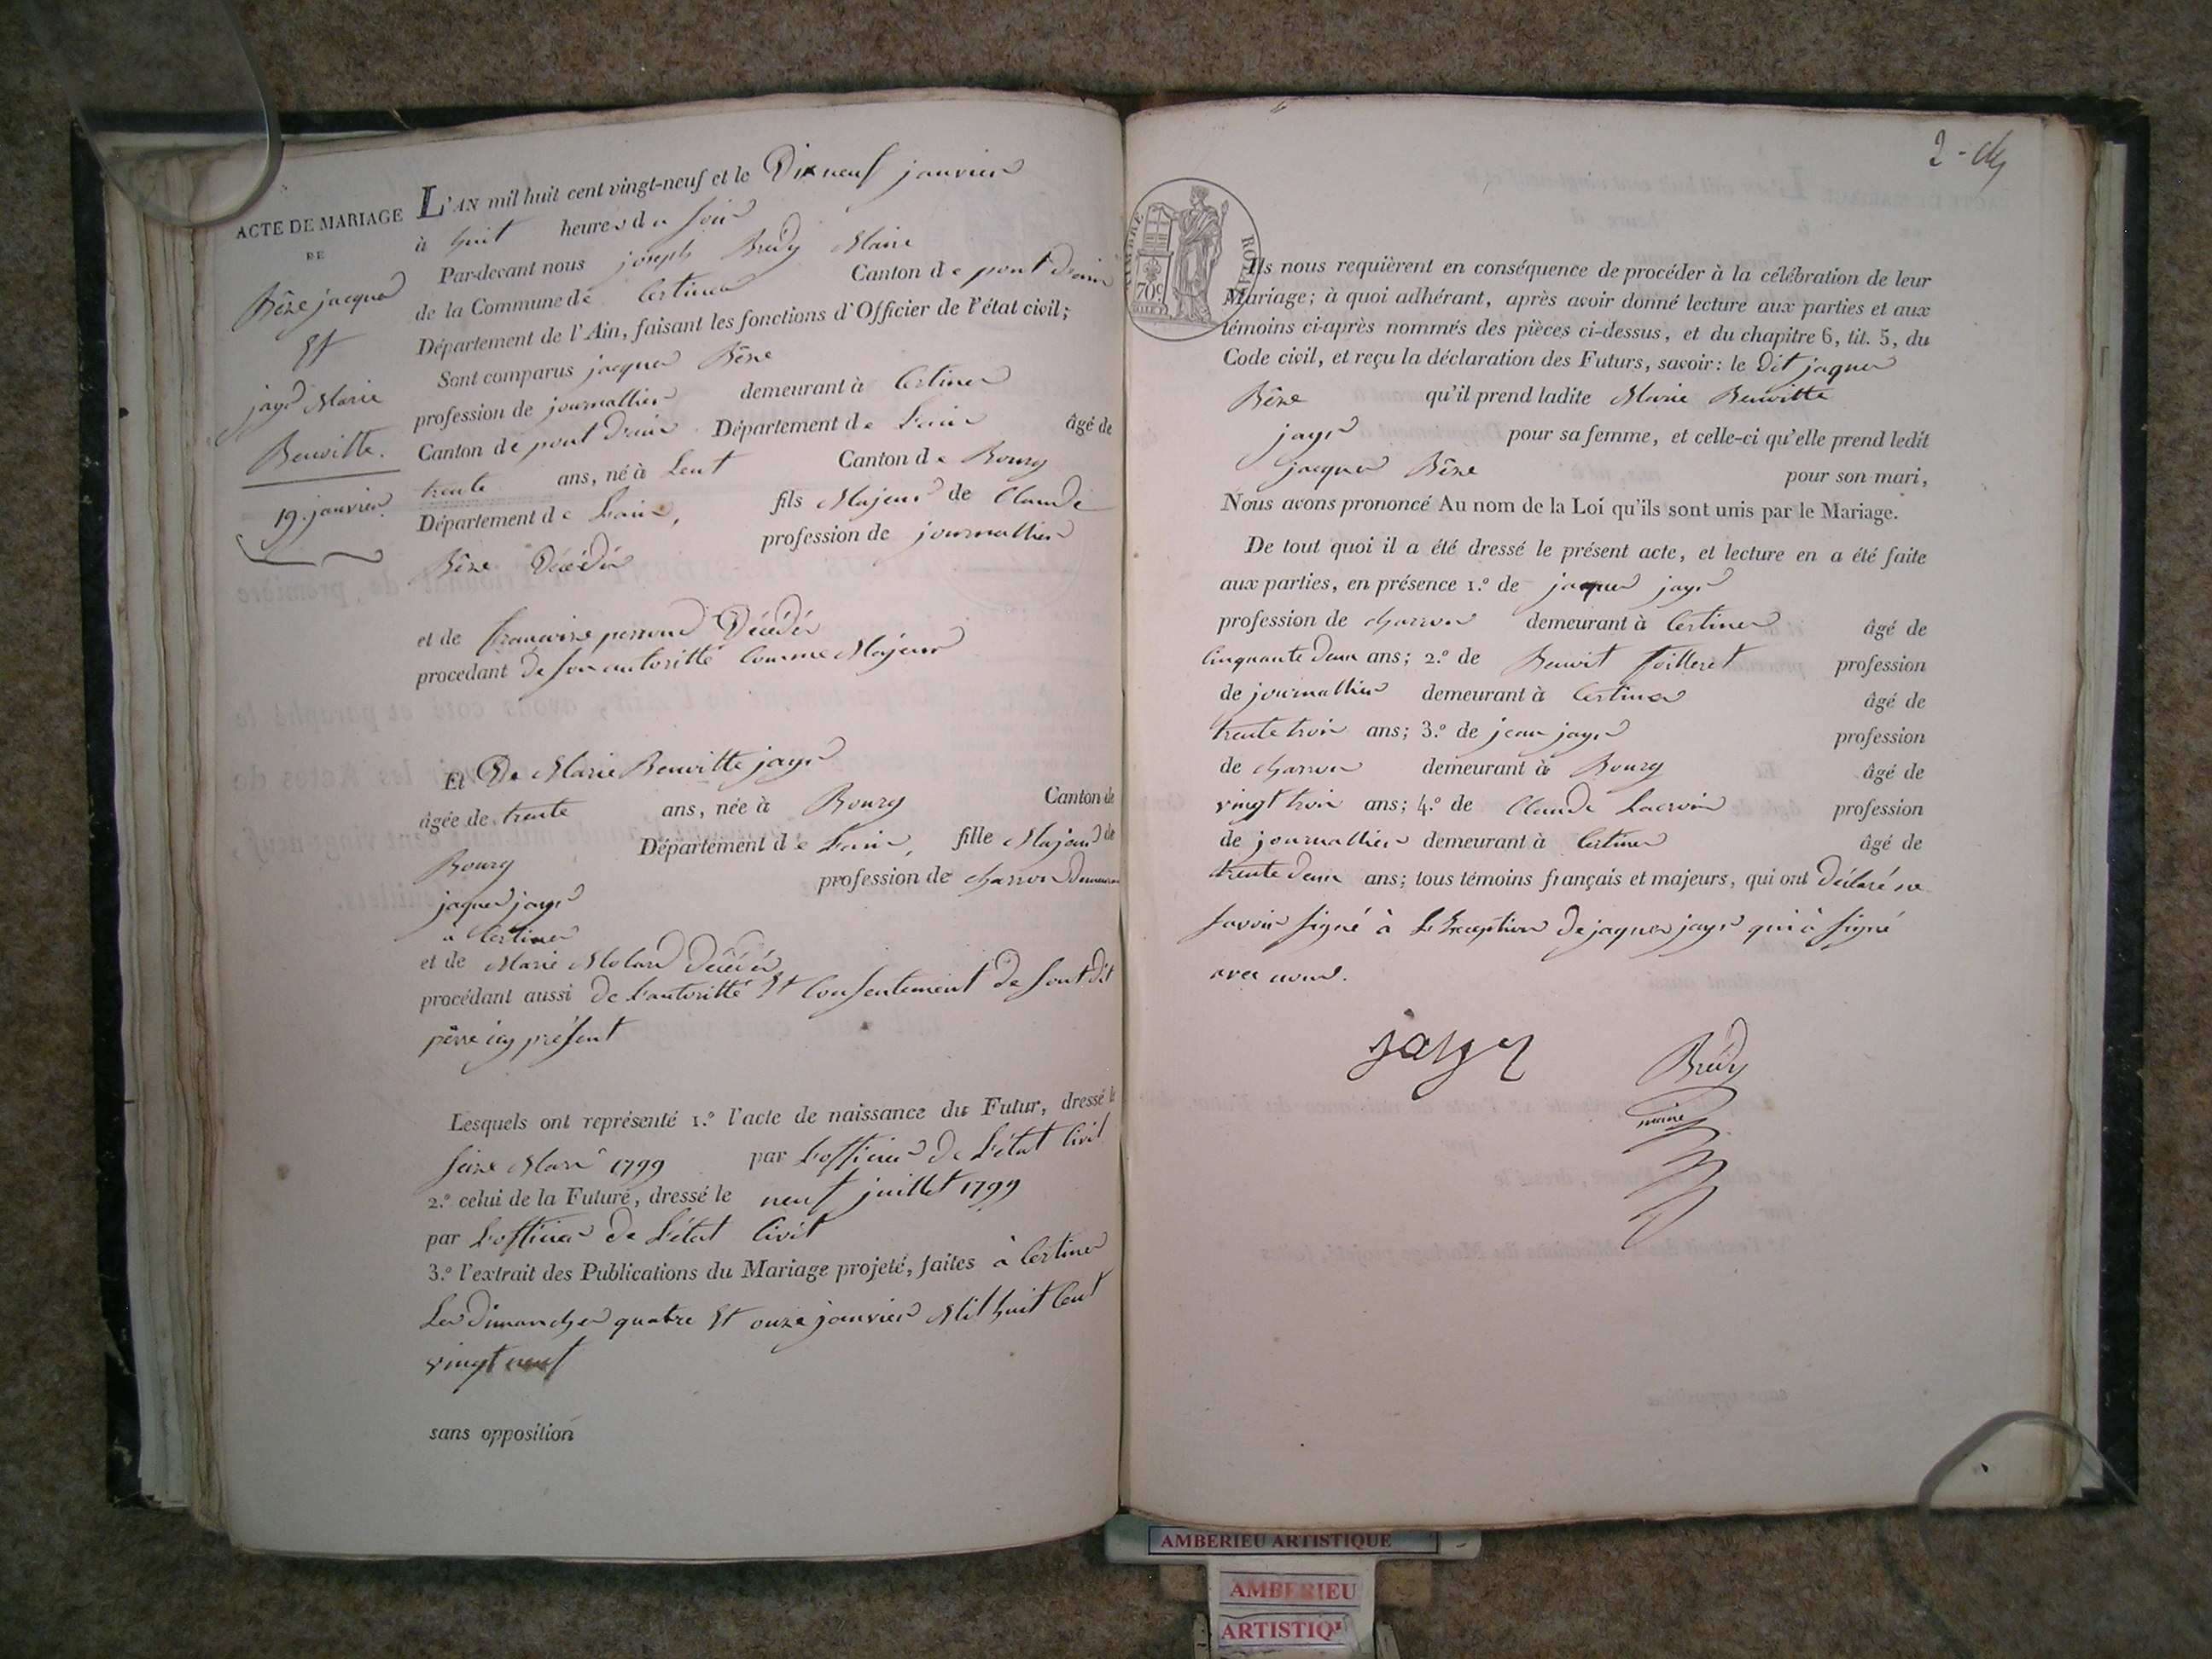 ACTE DE MARIAGE
DE
Bêze jacques
Et
jayr Marie
Benoitte.
19. janvier.
L'AN mil huit cent vingt-neuf et le Dixneuf janvier
à huit heures du soir
Par-devant nous joseph Brédy Maire
de la Commune de Certines Canton de pont d'ain
Département de l'Ain, faisant les fonctions d'Officier de l'état civil;
Sont comparus jacques Bêze
profession de journallier demeurant à Certines
Canton de pont d'ain Département de L'ain âgé de
trente ans, né à Lent Canton de Bourg
Département de L'ain, fils Majeur de Claude
Bêze Décédé profession de journallier
et de francoise perroud Décédée
procedant de son autoritté comme Majeur
Et De Marie Benoitte jayr
âgée de trente ans, née à Bourg Canton de
Bourg Département de L'ain, fille Majeur de
jaques jayr profession de charron Demeurant
a Certines
et de Marie Molard Décédée
procédant aussi de l'autoritté Et Consentement de Sont dit
père icy présent
Lesquels ont représenté 1.º l'acte de naissance du Futur, dressé le
seize Mars 1799 par L'officier de L'état Civil
2.º celui de la Future, dressé le neuf juillet 1799
par L'officier de L'état Civil
3.º l'extrait des Publications du Mariage projeté, faites à Certines
Les Dimanches quatre Et onze janvier Mil huit Cent
vingt neuf
sans opposition
2 -
TIMBRE ROYAL
70c
Ils nous requièrent en conséquence de procéder à la célébration de leur
Mariage; à quoi adhérant, après avoir donné lecture aux parties et aux
témoins ci-après nommés des pièces ci-dessus, et du chapitre 6, tit. 5, du
Code civil, et reçu la déclaration des Futurs, savoir: le dit jaques
Bêze qu'il prend ladite Marie Benoitte
jayr pour sa femme, et celle-ci qu'elle prend ledit
jacques Bêze pour son mari,
Nous avons prononcé Au nom de la Loi qu'ils sont unis par le Mariage.
De tout quoi il a été dressé le présent acte, et lecture en a été faite
aux parties, en présence 1.º de jaques jayr
profession de charron demeurant à Certines âgé de
Cinquante deux ans; 2.º de Benoit foilleret profession
de journallier demeurant à Certines âgé de
trente trois ans; 3.º de jean jayr profession
de charron demeurant à Bourg âgé de
vingt trois ans; 4.º de Claude Lacroix profession
de journallier demeurant à Certines âgé de
trente deux ans; tous témoins français et majeurs, qui ont Déclaré ne
savoir signé à L'Exception De jaques jayr qui à signé
avec nous.
jayr
Brédy
maire
AMBERIEU ARTISTIQUE
AMBERIEU
ARTISTIQ